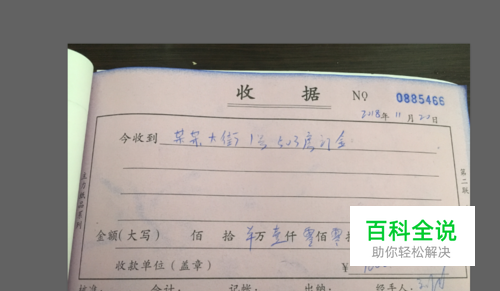 收据 NO 0885466
2018年11月23日
今收到 某某大街1号503房订金
第二联
金额(大写) 佰 拾 万 壹仟 零佰 零拾
收款单位(盖章) ¥
会计: 记账: 出纳: 经手人:
百科全说
助你轻松解决